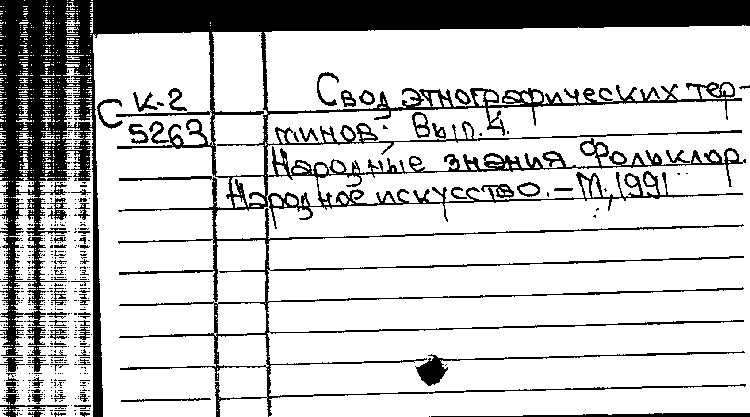 С К-2
5263
Свод этнографических тер-
минов. Вып. 4.
Народные знания. Фольклор.
Народное искусство. – М., 1991